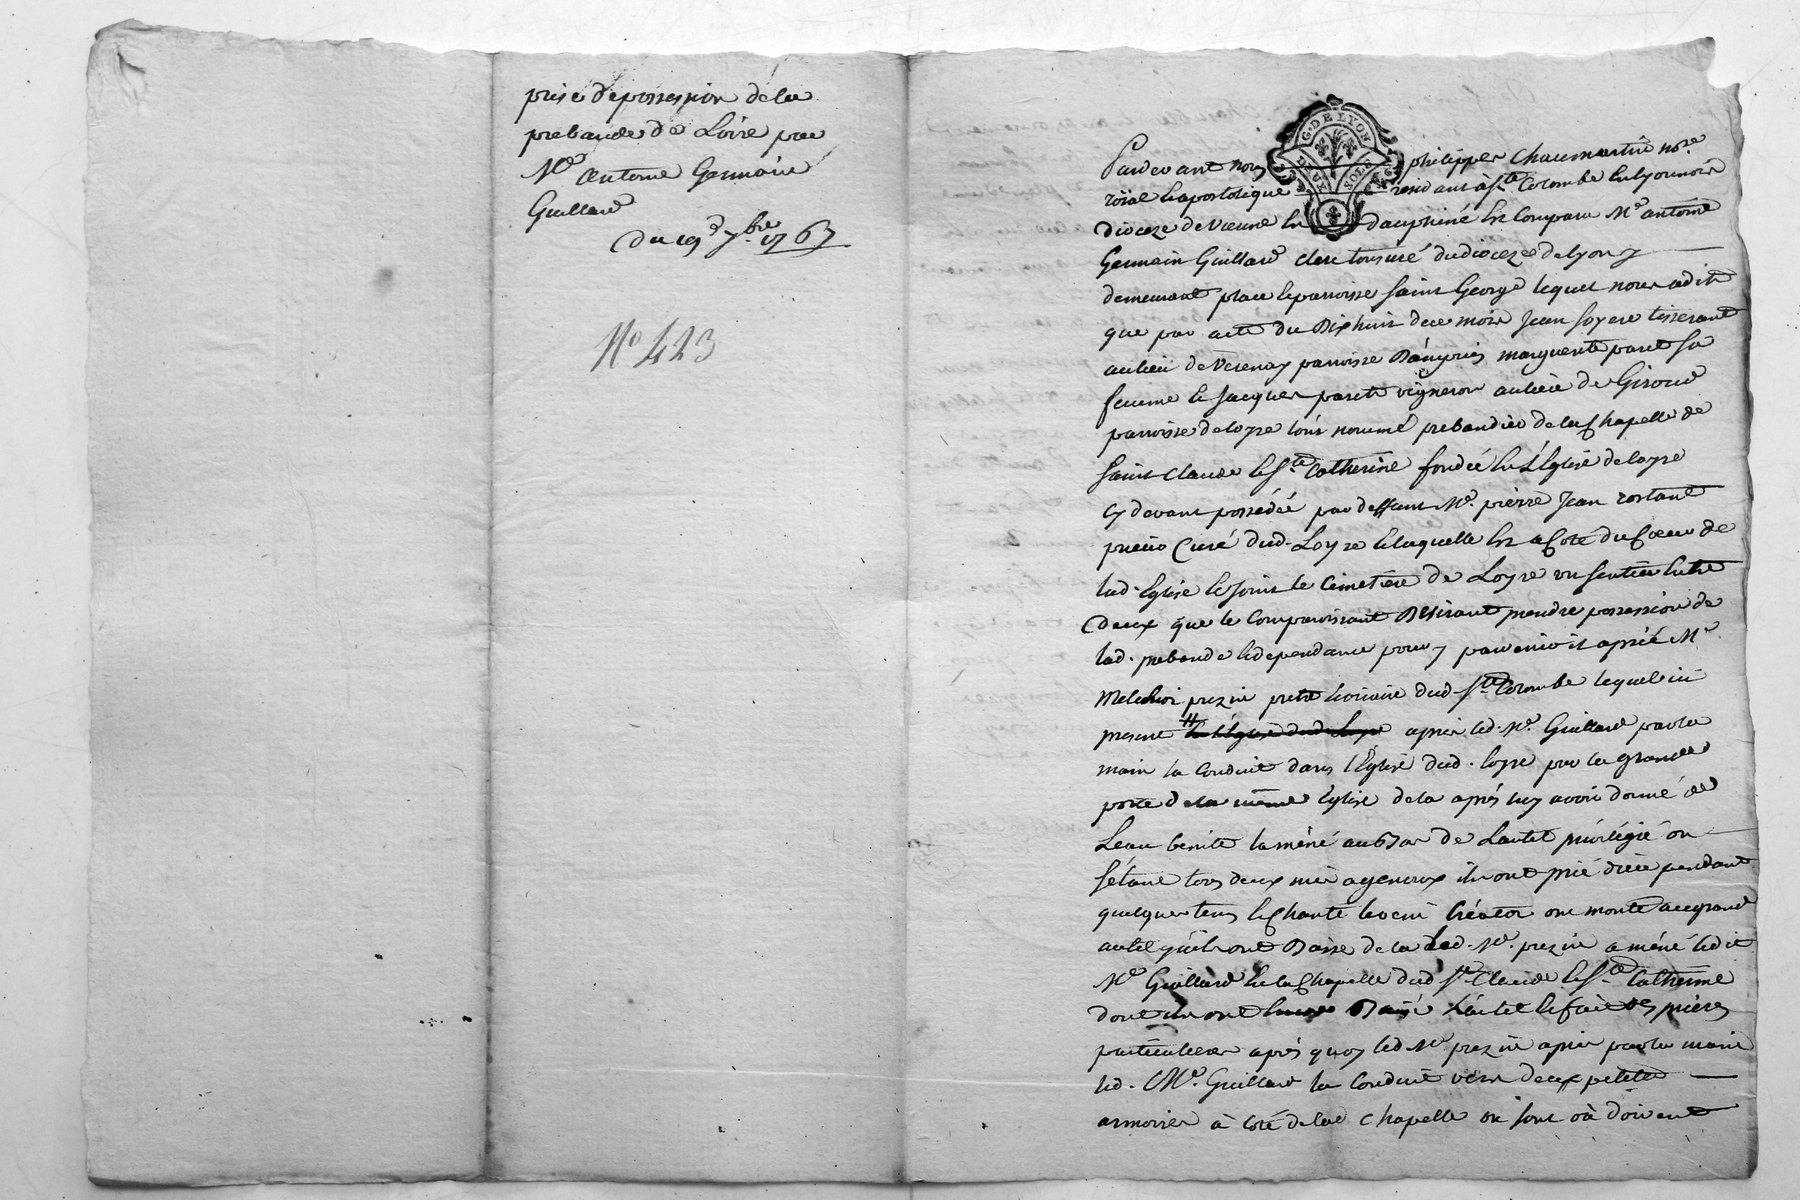 prise de possession de la
prebande de Loire par
Me Antoine Germain
Guillard
du 19e 7bre 1767
No 423
G. DE LYON
DEUX SOLS
Pardevant nous philippe Chaumartin nore
roial & apostolique residant à Ste Colombe en lyonnois
dioceze de vienne en dauphiné est comparu Me antoine
Germain Guillard clerc tonsuré du dioceze de lyon y
demeurant place & parroisse saint George lequel nous a dit
que par acte du dixhuit de ce mois Jean soyere tisserant
au lieu de Verenay parroisse d'ampuis marguerite paret sa
femme & Jacques paret vigneron au lieu de Giroud
parroisse de loyre l'ont nommé prebandier de la Chapelle de
saint Claude & Ste Catherine fondée en L'Eglise de loyre
cy devant possédée par deffunt Me. pierre Jean rostant
prieur Curé dud. Loyre & laquelle est a Coté du Coeur de
lad. Eglise & joint le Cimetiere de Loyre un sentier entre
deux que le Comparoissant Desirant prendre possession de
lad. prebande & dependance pour y parvenir il a prié Me
Melchior prezin pretre vicaire dud. Ste Colombe lequel ici
present en l'Eglise dud. Loyre a pris led. Me. Guillard par la
main la conduit dans l'Eglise dud. loyre par la grande
porte de la même Eglise de la aprés luy avoir donné de
Leau benite la mêné au bas de Lautel privilégié ou
sétant tous deux mis a genoux ils ont prié dieu pendant
quelque tems & Chanté le veni Créator ont monté au grand
autel qu'ils ont Baisé de la led. Me. prezin a mêné ledit
Me Guillard en la Chapelle dud. St Claude & Ste Catherine
dont ils ont Baisé L'autel & fait des prières
particulieres aprés quoy led. Me prezin a pris par la main
led. Me. Guillard la Conduit vers deux petites
armoires à coté de lad. Chapelle ou sont où doivent